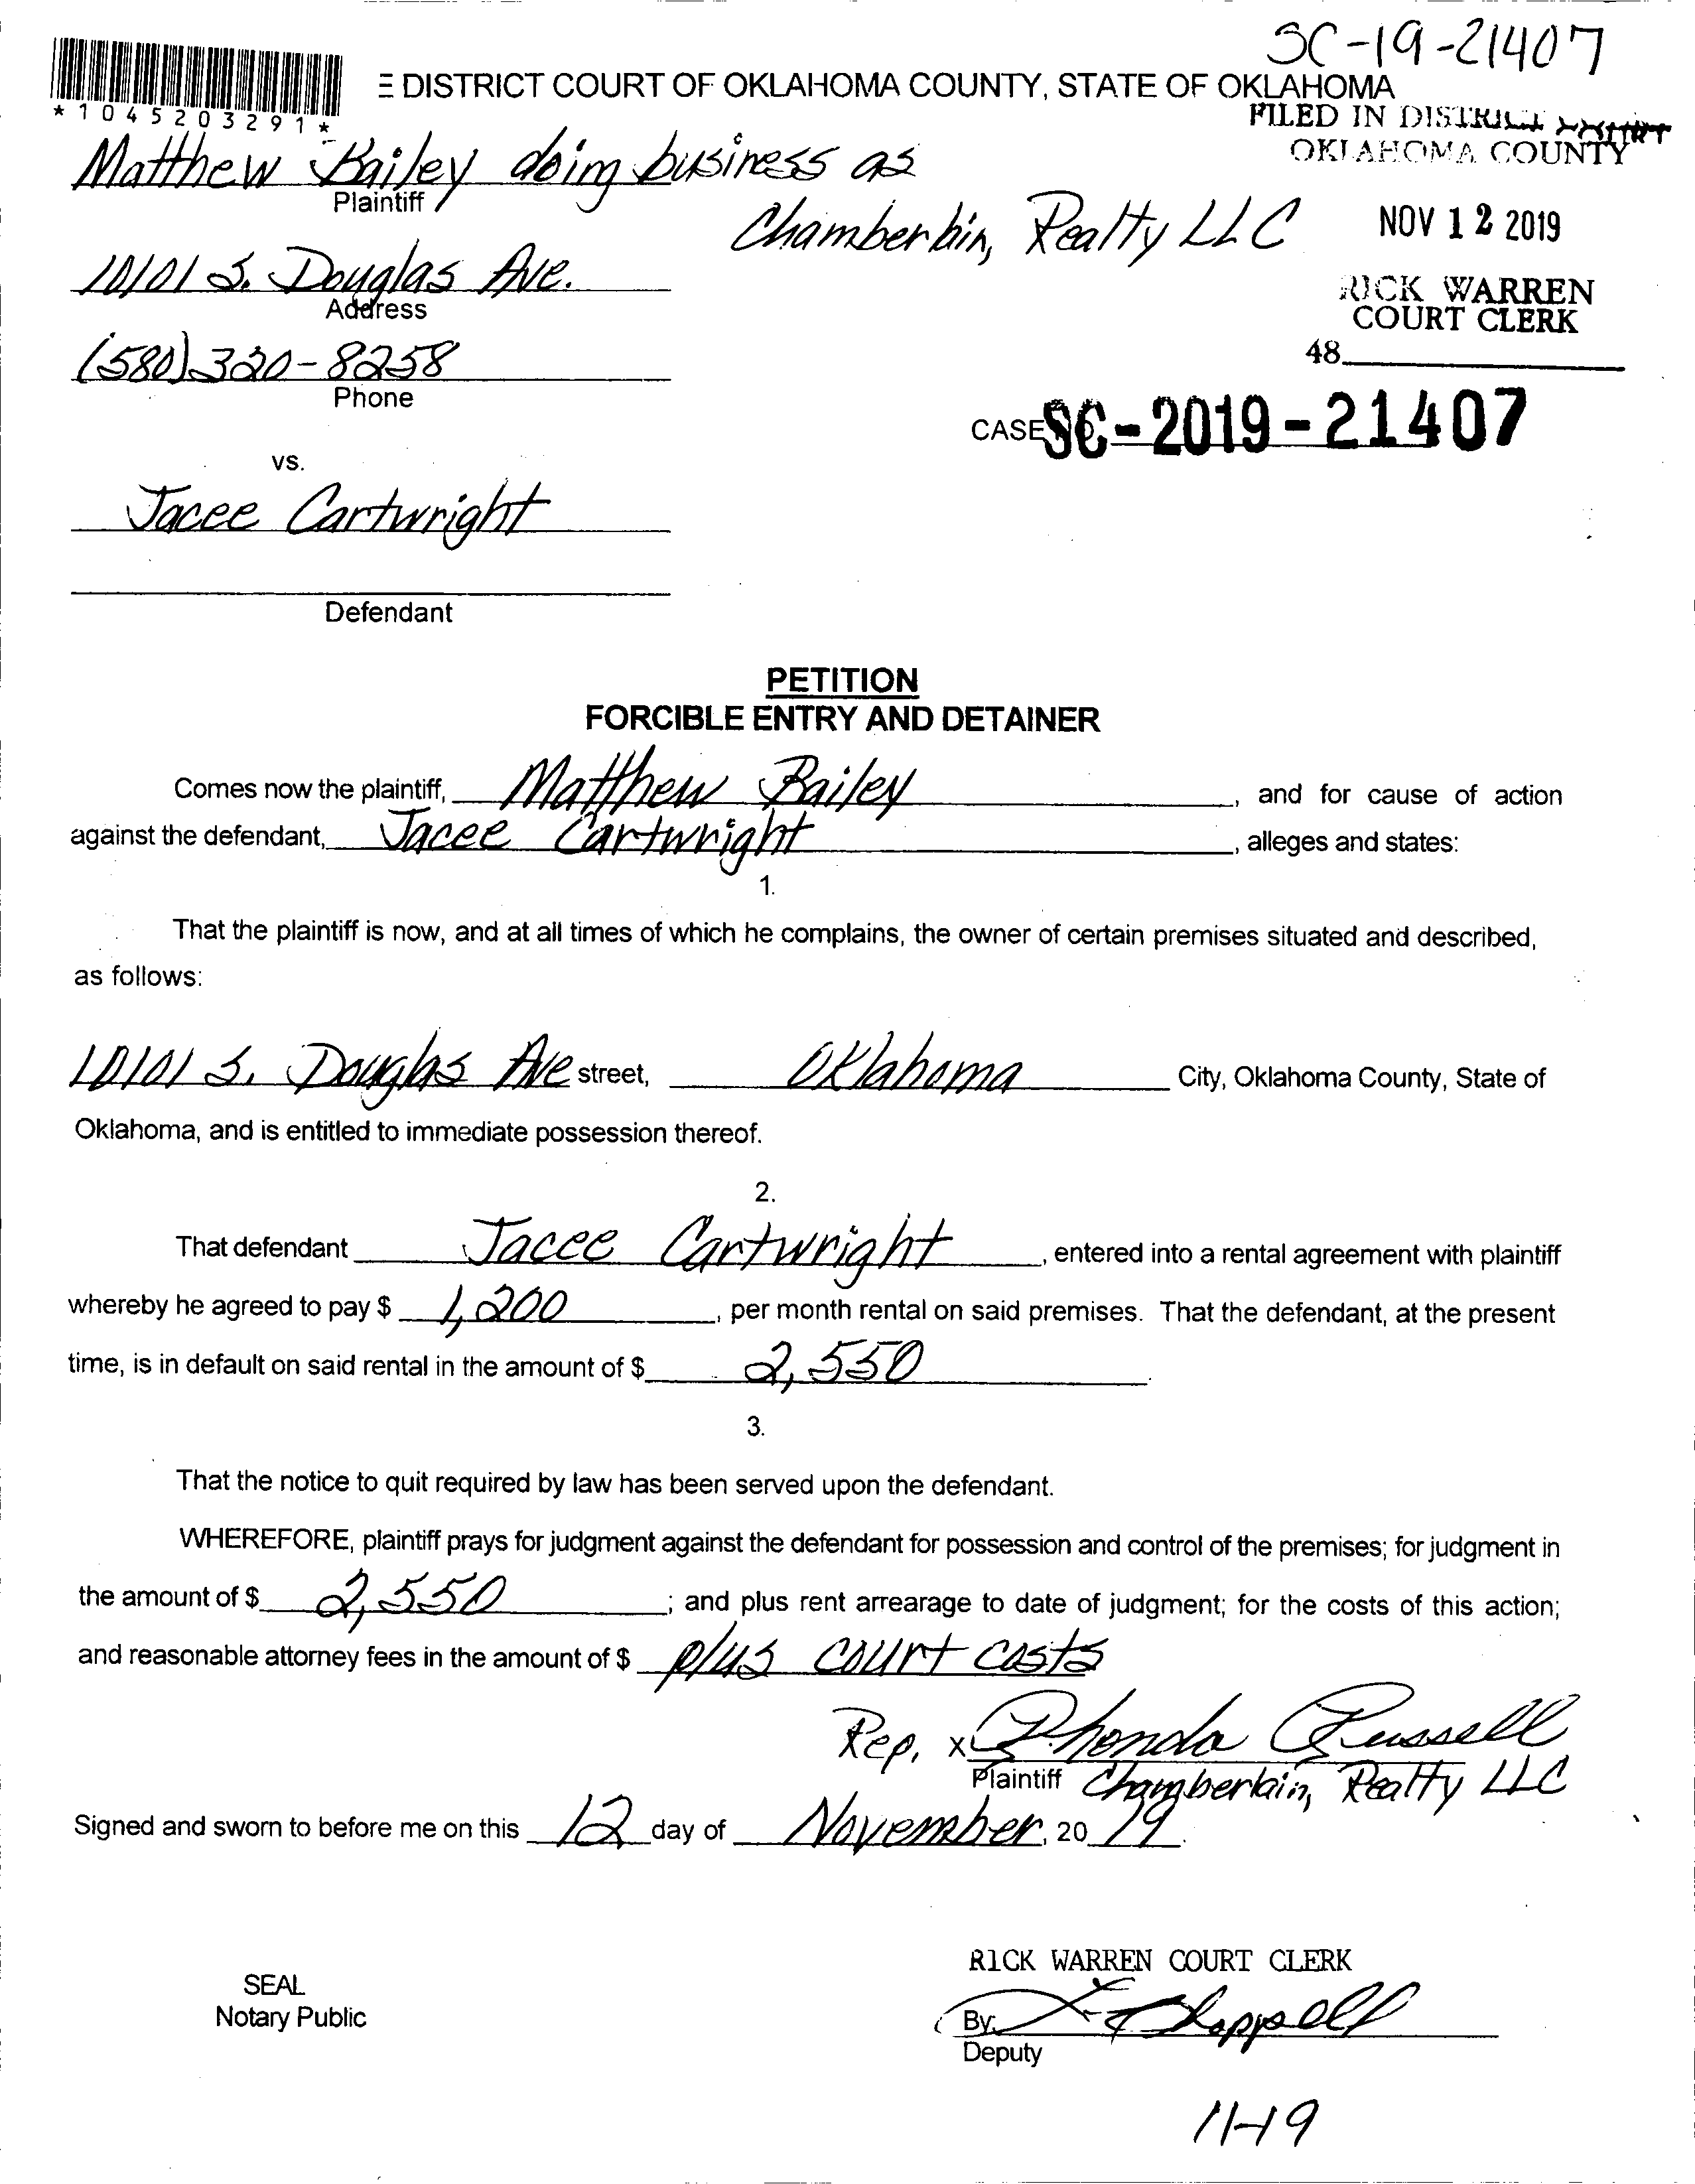 SC-19-21407
DISTRICT COURT OF OKLAHOMA COUNTY, STATE OF OKLAHOMA
*1045203291*
FILED IN DISTRICT COURT
OKLAHOMA COUNTY
Matthew Bailey doing business as
Plaintiff
Chamberlain, Realty LLC
NOV 12 2019
10101 S. Douglas Ave.
Address
RICK WARREN
COURT CLERK
(580) 320-8258
48
Phone
CASE SC-2019-21407
vs.
Jacee Cartwright
Defendant
PETITION
FORCIBLE ENTRY AND DETAINER
Comes now the plaintiff, Matthew Bailey, and for cause of action
against the defendant, Jacee Cartwright, alleges and states:
1.
That the plaintiff is now, and at all times of which he complains, the owner of certain premises situated and described,
as follows:
10101 S. Douglas Ave street, Oklahoma City, Oklahoma County, State of
Oklahoma, and is entitled to immediate possession thereof.
2.
That defendant Jacee Cartwright, entered into a rental agreement with plaintiff
whereby he agreed to pay $ 1,200, per month rental on said premises. That the defendant, at the present
time, is in default on said rental in the amount of $ 2,550.
3.
That the notice to quit required by law has been served upon the defendant.
WHEREFORE, plaintiff prays for judgment against the defendant for possession and control of the premises; for judgment in
the amount of $ 2,550; and plus rent arrearage to date of judgment; for the costs of this action;
and reasonable attorney fees in the amount of $ plus court costs
Rep. x Rhonda Russell
Plaintiff Chamberlain, Realty LLC
Signed and sworn to before me on this 12 day of November, 2019.
RICK WARREN COURT CLERK
SEAL
Notary Public
By: Chappell
Deputy
11-19